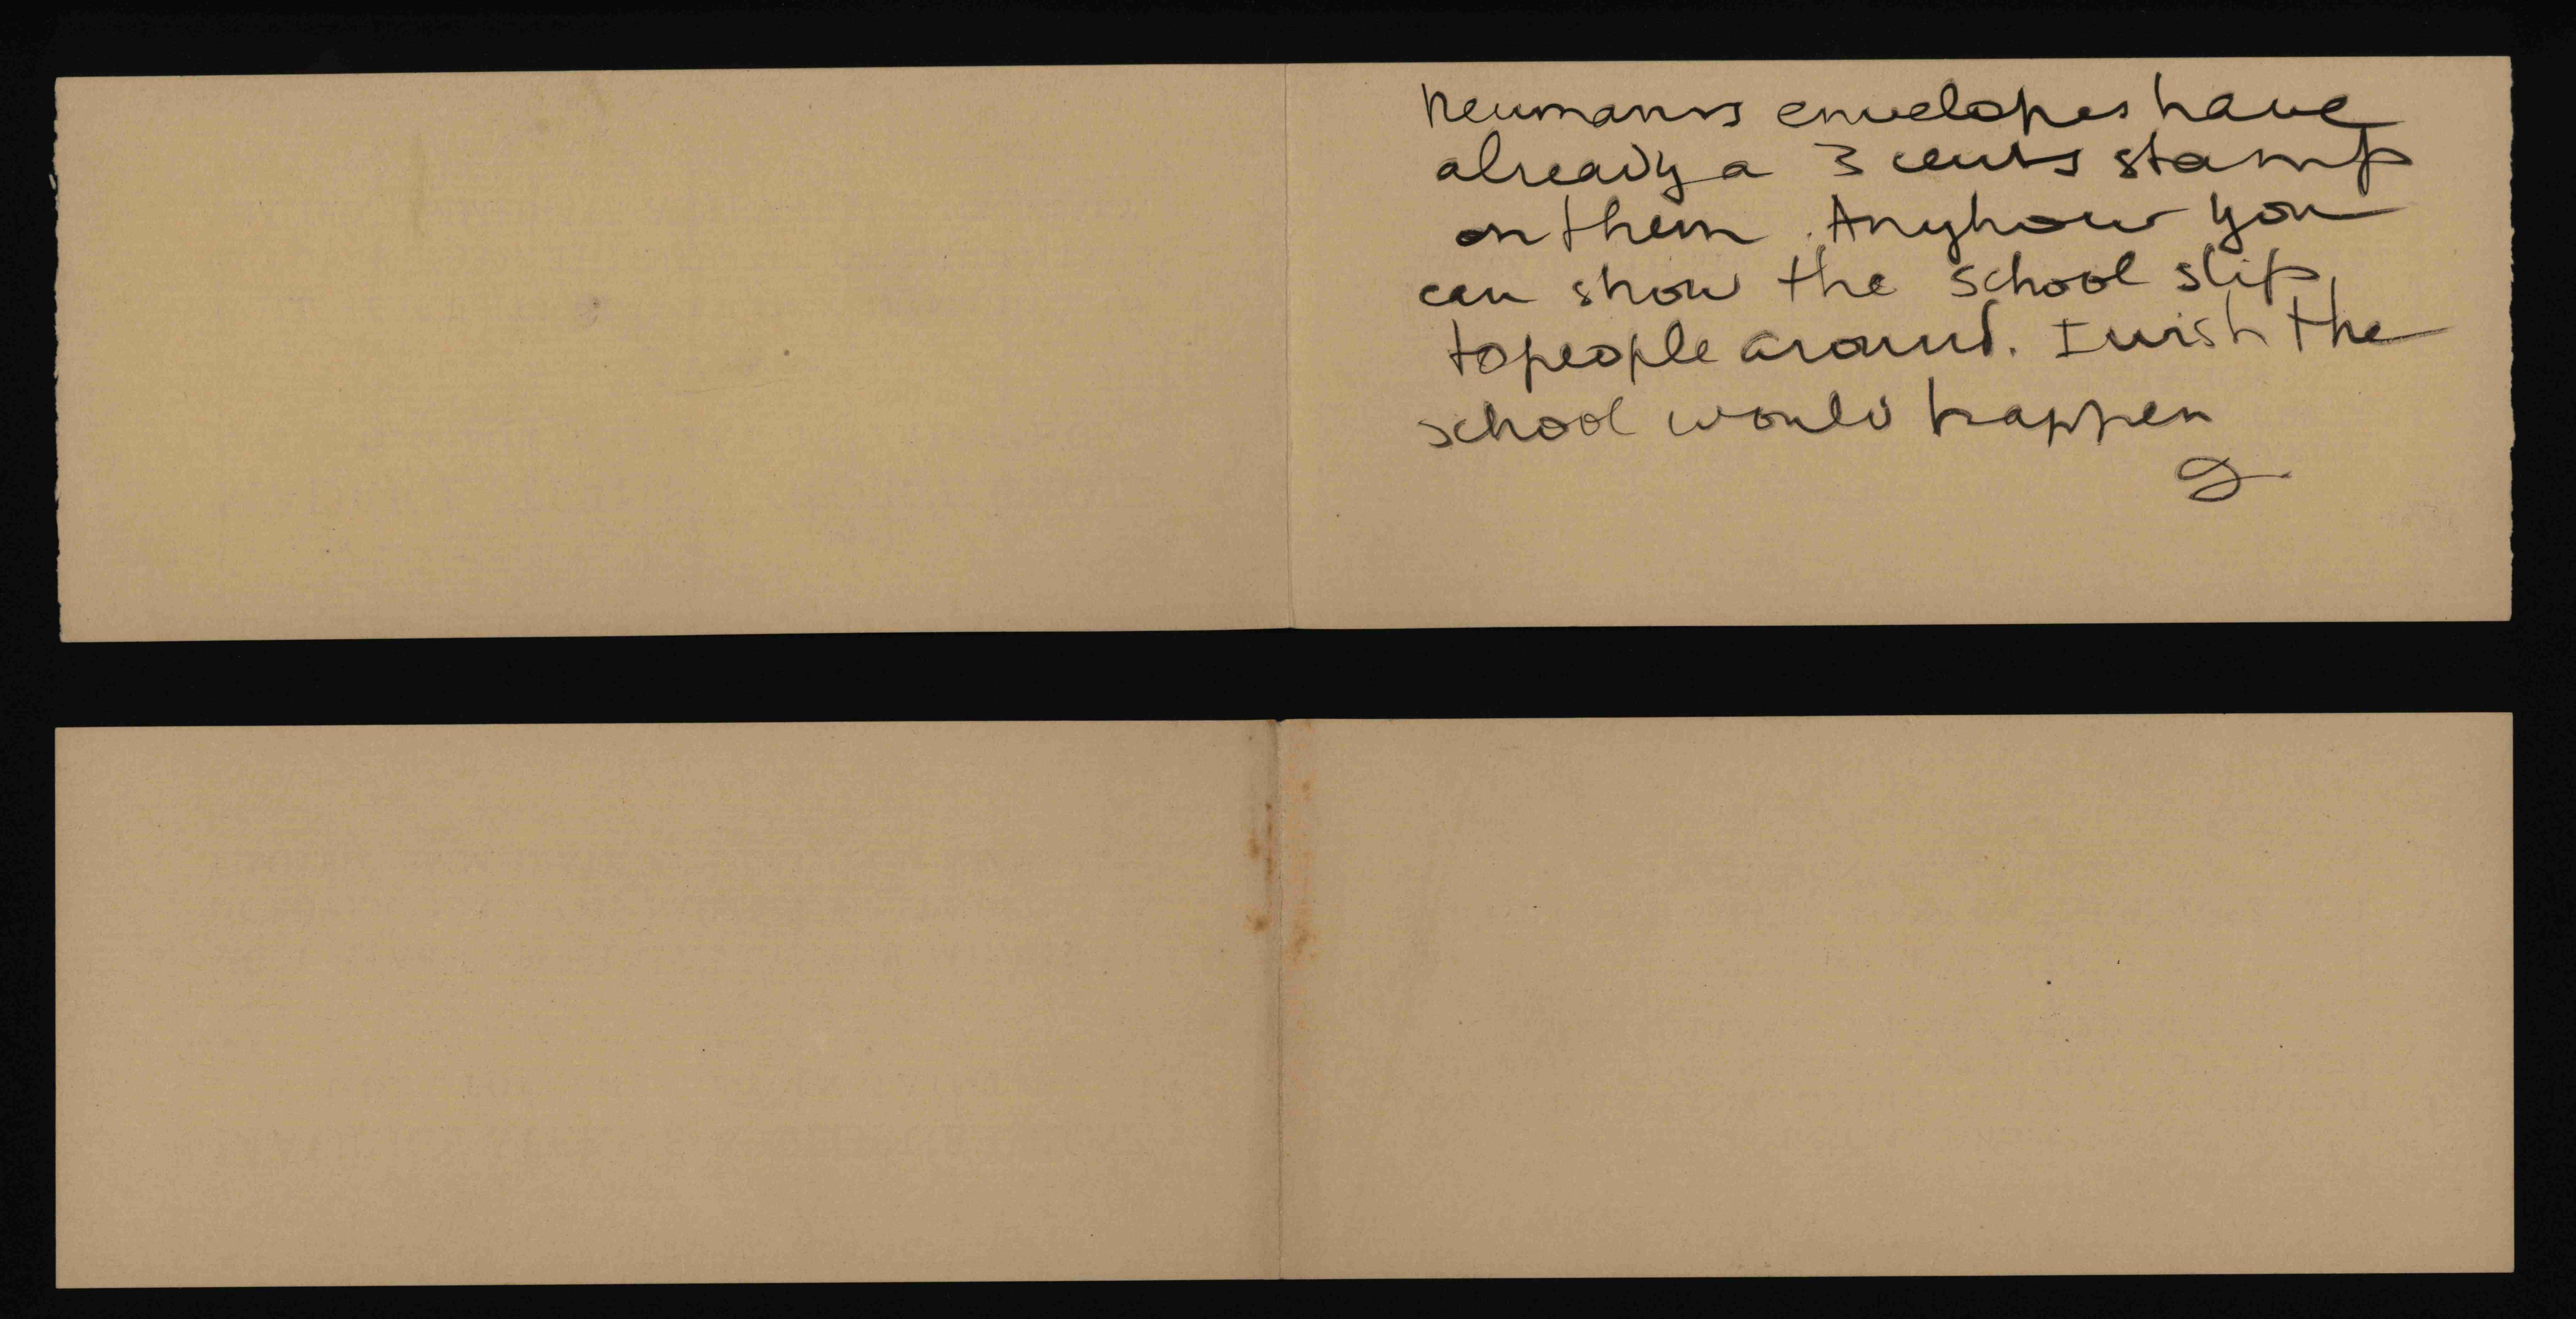 Neumanns envelopes have
already a 3 cents stamp
on them. Anyhow you
can show the school slip
to people around. I wish the
school would happen